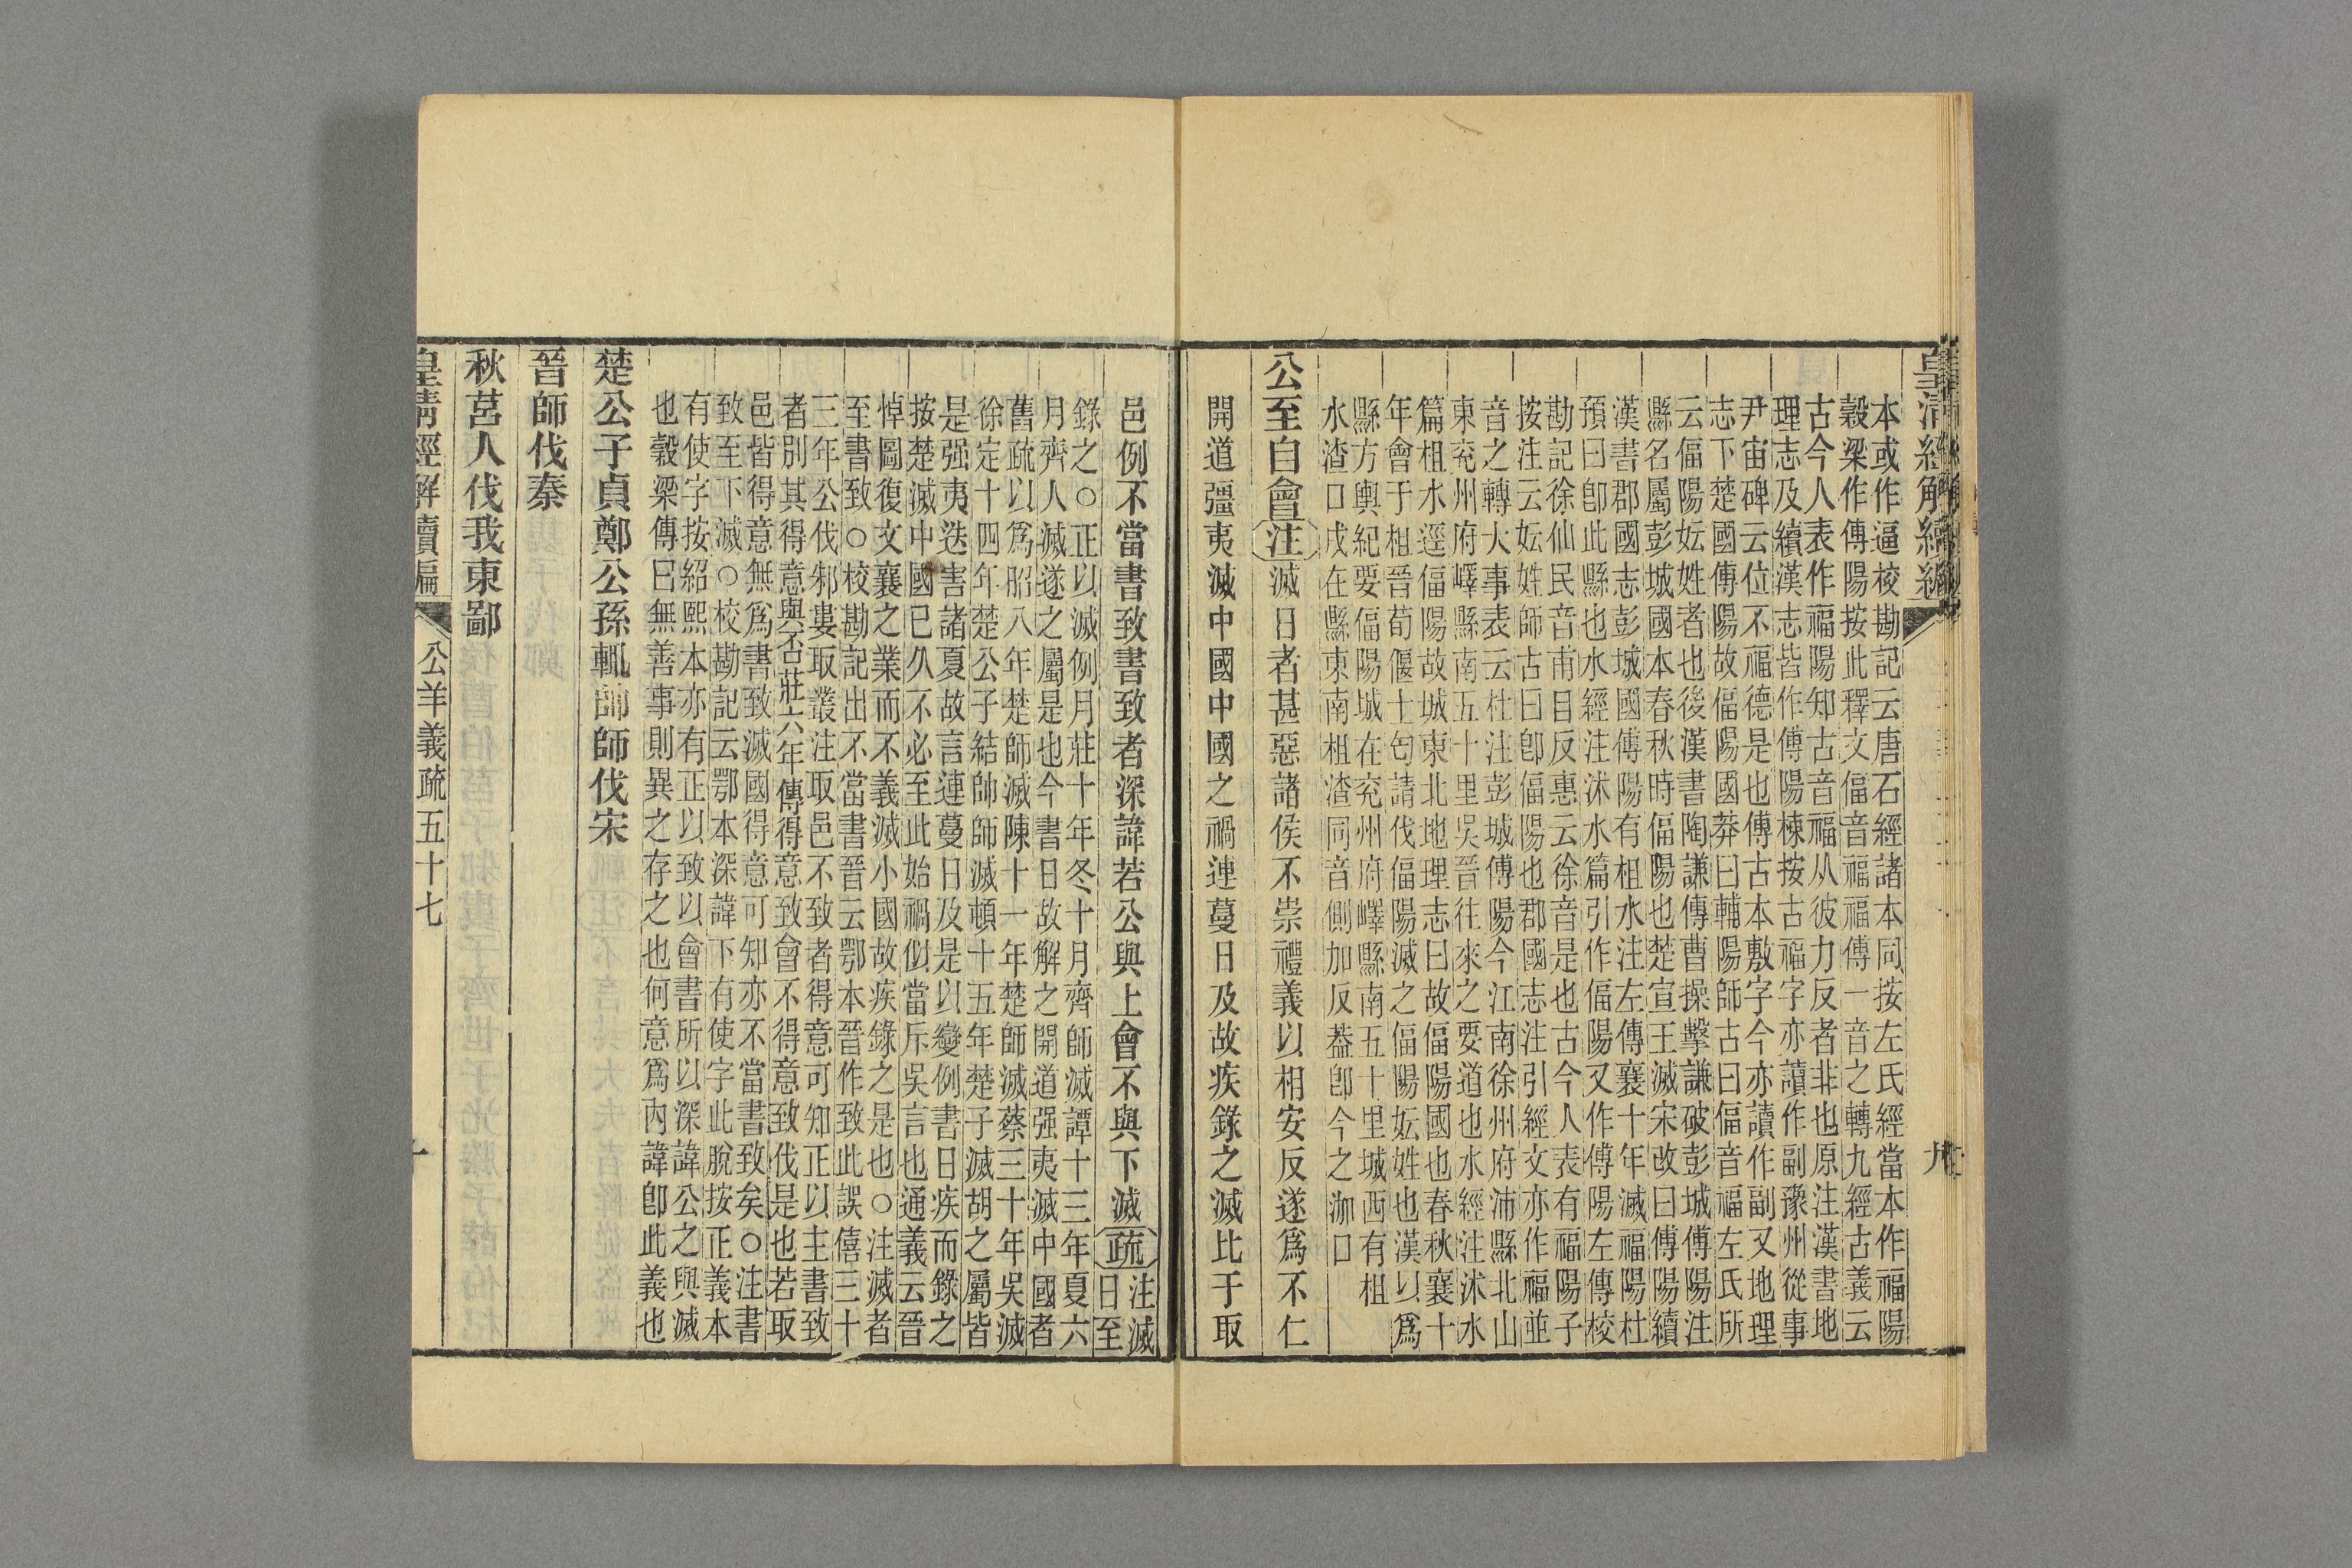 皇清經解續編
本或作逼校勘記云唐石經諸本同按左氏經當本作福陽
穀梁作傅陽按此釋文偪音福福傅一音之轉九經古義云
古今人表作福陽知古音福从彼力反者非也原注漢書地
理志及續漢志皆作傅陽棟按古福字亦讀作副豫州從事
尹宙碑云位不福德是也傅古本敷字今亦讀作副又地理
志下楚國傅陽故偪陽國莽曰輔陽師古曰偪音福左氏所
云偪陽妘姓者也後漢書陶謙傳曹操擊謙破彭城傅陽注
縣名屬彭城國本春秋時偪陽也楚宣王滅宋改曰傅陽續
漢書郡國志彭城國傅陽有柤水注左傳襄十年滅福陽杜
預曰卽此縣也水經注沭水篇引作偪陽又作傅陽左傳校
勘記徐仙民音甫目反惠云徐音是也古今人表有福陽子
按注云妘姓師古曰卽偪陽也郡國志注引經文亦作福並
音之轉大事表云杜注彭城傅陽今江南徐州府沛縣北山
東兗州府嶧縣南五十里吳晉往來之要道也水經注沭水
篇柤水逕偪陽故城東北地理志曰故偪陽國也春秋襄十
年會于柤晉荀偃士匄請伐偪陽滅之偪陽妘姓也漢以爲
縣方輿紀要偪陽城在兗州府嶧縣南五十里城西有柤
水渣口戍在縣東南柤渣同音側加反葢卽今之泇口
公至自會注滅日者甚惡諸侯不崇禮義以相安反遂爲不仁
開道彊夷滅中國中國之禍連蔓日及故疾錄之滅比于取
九
邑例不當書致書致者深諱若公與上會不與下滅疏注滅
日至
錄之○正以滅例月莊十年冬十月齊師滅譚十三年夏六
月齊人滅遂之屬是也今書日故解之開道强夷滅中國者
舊疏以爲昭八年楚師滅陳十一年楚師滅蔡三十年吳滅
徐定十四年楚公子結帥師滅頓十五年楚子滅胡之屬皆
是强夷迭害諸夏故言連蔓日及是以變例書日疾而錄之
按楚滅中國已久不必至此始禍似當斥吳言也通義云晉
悼圖復文襄之業而不義滅小國故疾錄之是也○注滅者
至書致○校勘記出不當書晉云鄂本晉作致此誤僖三十
三年公伐邾婁取叢注取邑不致者得意可知正以主書致
者別其得意與否莊六年傳得意致會不得意致伐是也若取
邑皆得意無爲書致滅國得意可知亦不當書致矣○注書
致至下滅○校勘記云鄂本深諱下有使字此脫按正義本
有使字按紹熙本亦有正以致以會書所以深諱公之與滅
也穀梁傳曰無善事則異之存之也何意爲內諱卽此義也
楚公子貞鄭公孫輒帥師伐宋
晉師伐秦
秋莒人伐我東鄙
皇清經解續編
公羊義疏五十七